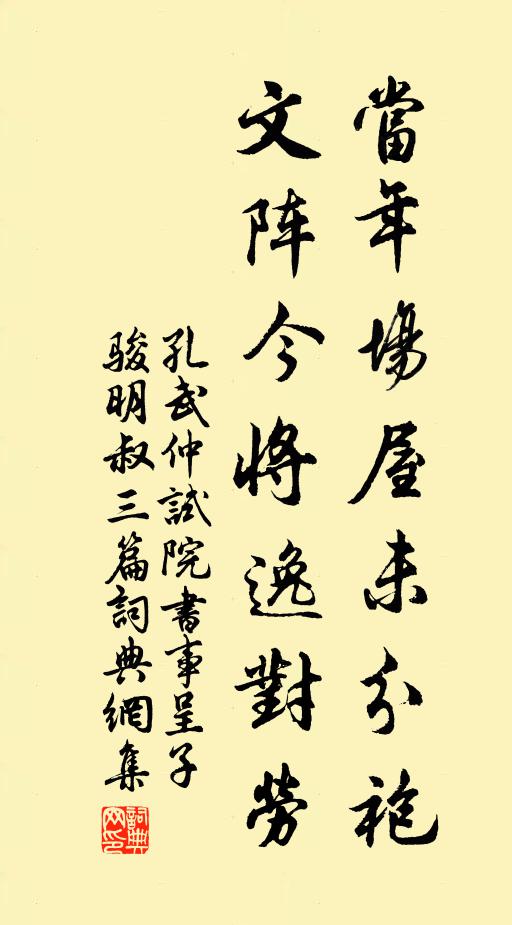 當年場屋未分袍
文阵今將逸對勞
孔武仲試院書事呈子
骏明叔三篇詞典網集
詞典网印